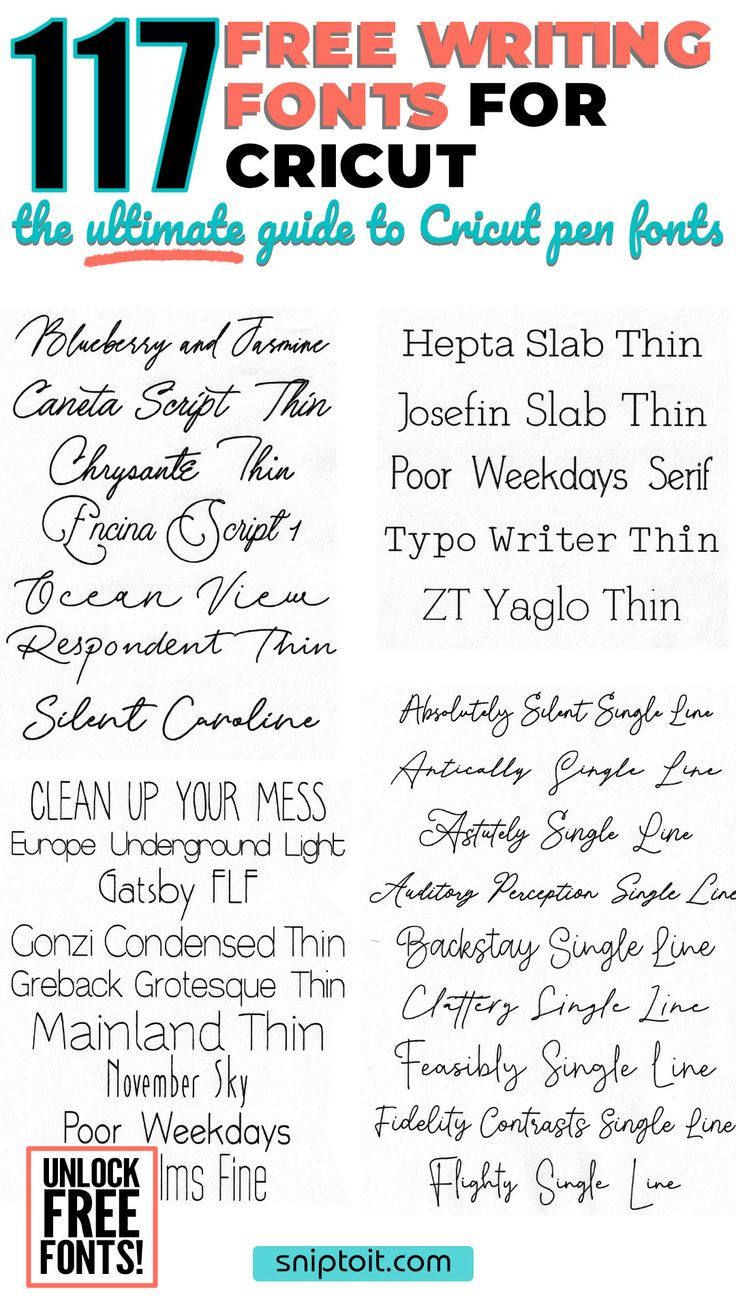 117 FREE WRITING
FONTS FOR
CRICUT
the ultimate guide to Cricut pen fonts
Blueberry and Jasmine
Caneta Script Thin
Chrysante Thin
Encina Script 1
Ocean View
Respondent Thin
Silent Caroline
Hepta Slab Thin
Josefin Slab Thin
Poor Weekdays Serif
Typo Writer Thin
ZT Yaglo Thin
CLEAN UP YOUR MESS
Europe Underground Light
Gatsby FLF
Gonzi Condensed Thin
Greback Grotesque Thin
Mainland Thin
November Sky
Poor Weekdays
Fine
Absolutely Silent Single Line
Antically Single Line
Astutely Single Line
Auditory Perception Single Line
Backstay Single Line
Clattery Single Line
Feasibly Single Line
Fidelity Contrasts Single Line
Flighty Single Line
UNLOCK
FREE
FONTS!
sniptoit.com